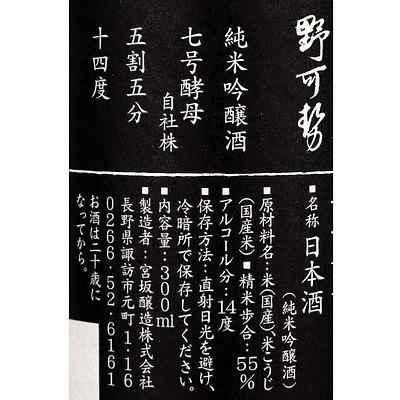 野可勢
純米吟醸酒
七号酵母
自社株
五割五分
十四度
■名称 日本酒
（純米吟醸酒）
■原材料名：米（国産）、米こうじ
（国産米）■精米歩合：55%
■アルコール分：14度
■保存方法：直射日光を避け、
冷暗所で保存してください。
■内容量：300ml
■製造者：宮坂醸造株式会社
長野県諏訪市元町1-16
0266-52-6161
お酒は二十歳に
なってから。